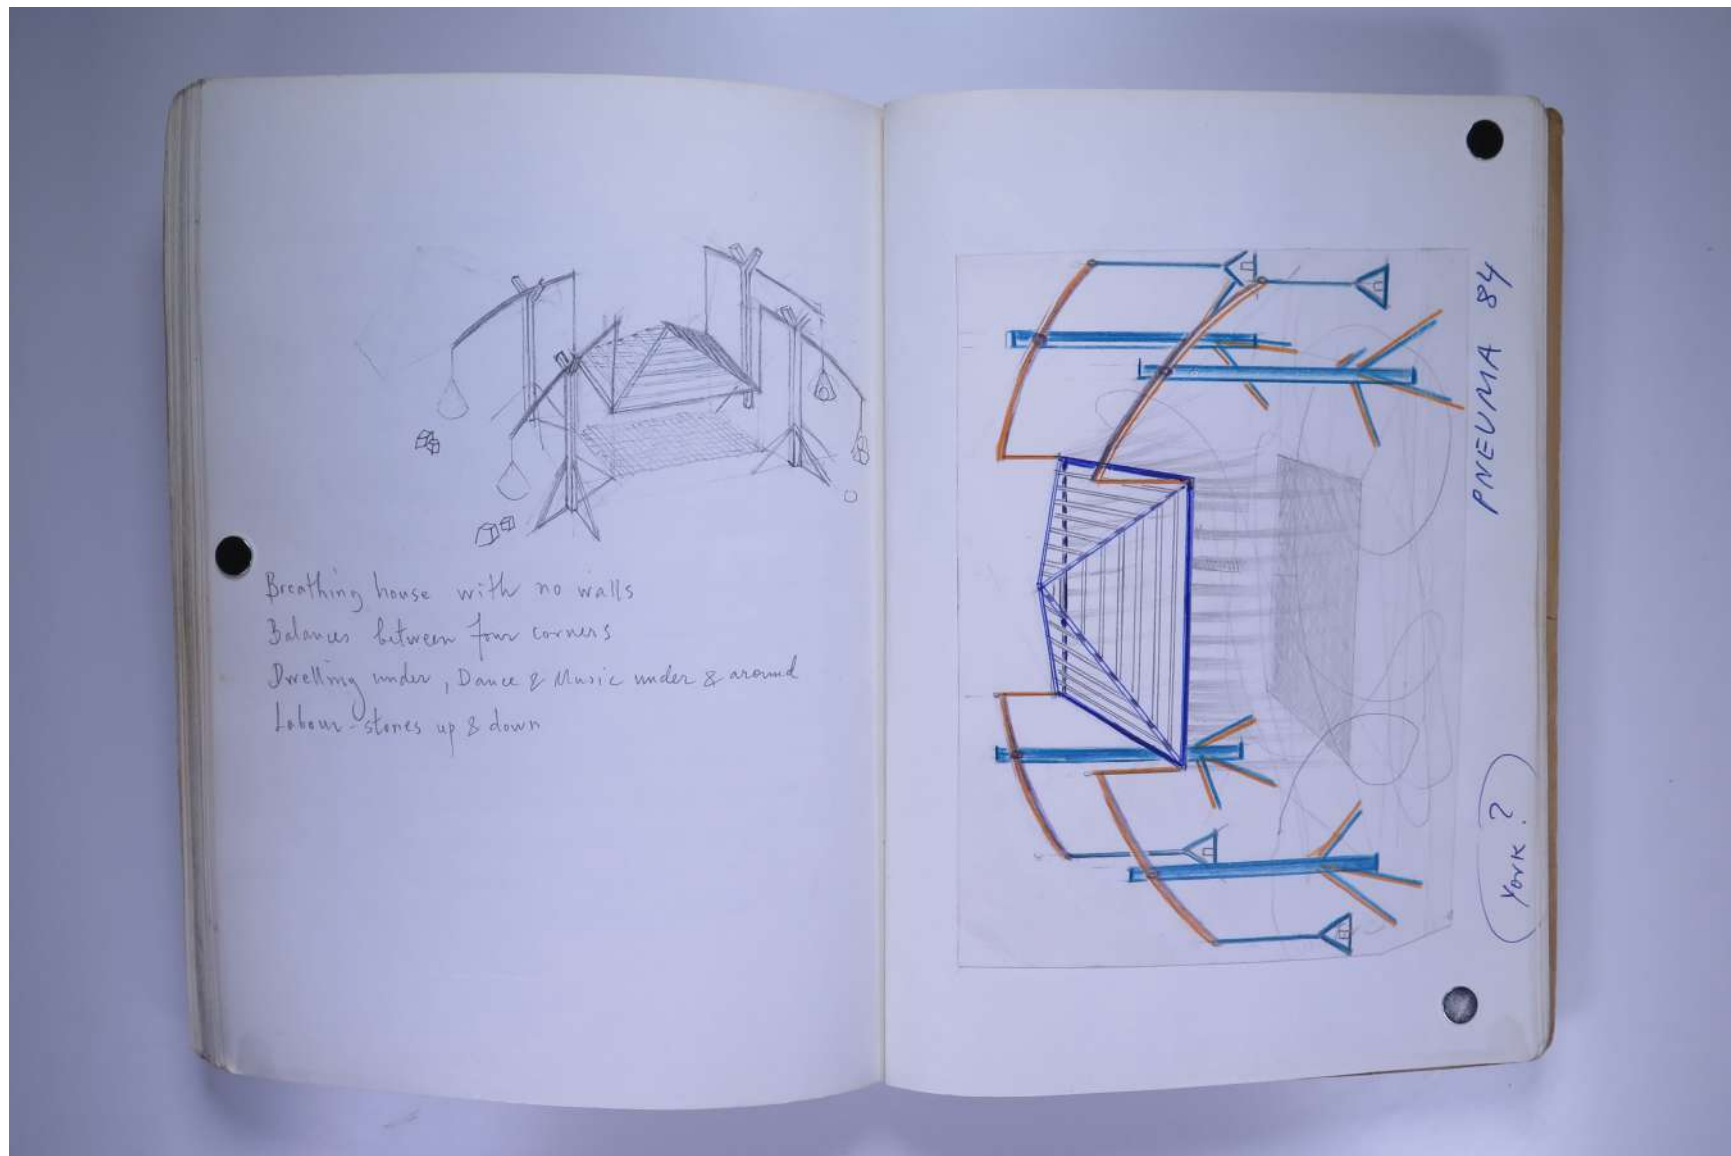 Breathing house with no walls
Balances between four corners
Dwelling under, Dance & Music under & around
Labour - stones up & down
PNEUMA 84
York?